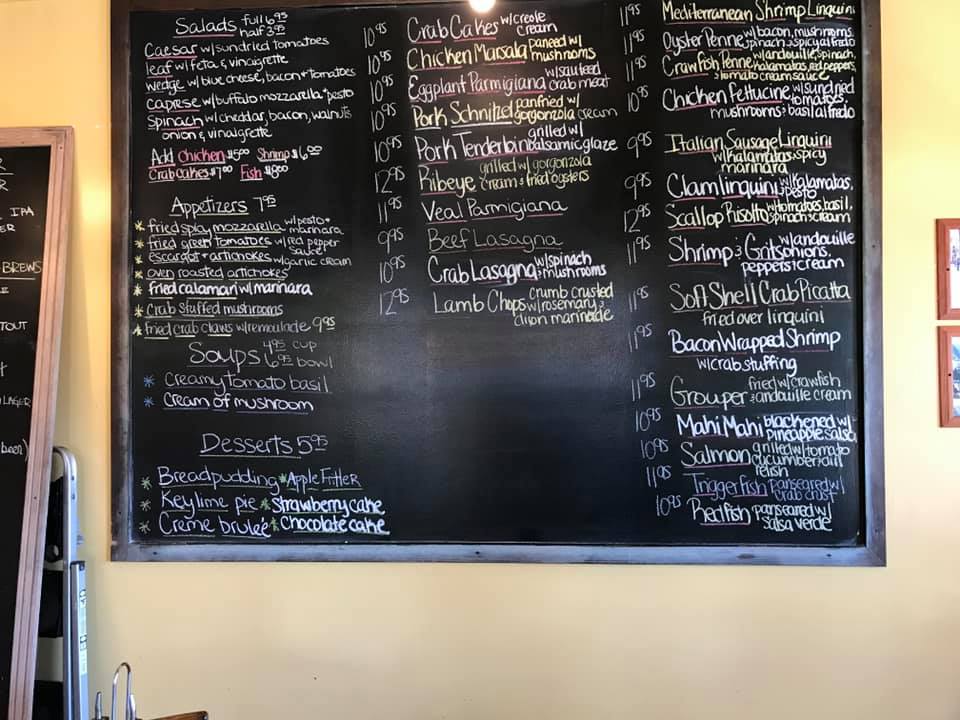 Salads full 6.95
half 3.95
Caesar w/ sundried tomatoes
leaf w/ feta & vinaigrette
wedge w/ blue cheese, bacon + tomatoes
caprese w/ buffalo mozzarella + pesto
Spinach w/ cheddar, bacon, walnuts
onion & vinaigrette
Add chicken $5.00 Shrimp $6.00
Crabcakes $7.00 Fish $8.00
Appetizers 7.95
* fried splay mozzarella w/ pesto +
marinara
* fried green tomatoes w/ red pepper
sauce
* escargot + artichokes w/ garlic cream
* oven roasted artichokes
* fried calamari w/ marinara
* Crab Stuffed mushrooms
* fried crab claws w/ remoulade 9.95
Soups 4.95 cup
6.95 bowl
* Creamy tomato basil
* Cream of mushroom
Desserts 5.95
* Breadpudding * Apple Fritter
* Keylime pie * Strawberry cake
* Creme brulee * Chocolate cake
10.95 Crab Cakes w/ creole
cream
10.95 Chicken Marsala paneed w/
mushrooms
10.95 Eggplant Parmigiana w/ sauteed
crab meat
10.95 Pork Schnitzel panfried w/
gorgonzola cream
10.95 Pork Tenderloin grilled w/
balsamic glaze
12.95 Ribeye grilled w/ gorgonzola
cream & fried oysters
11.95 Veal Parmigiana
9.95 Beef Lasagna
10.95 Crab Lasagna w/ spinach
& mushrooms
12.95 Lamb Chops crumb crusted
w/ rosemary &
dijon marinade
11.95 Mediterranean Shrimp Linguini
11.95 Oyster Penne w/ bacon, mushrooms,
spinach & spicy alfredo
11.95 Crawfish Penne w/ andouille, spinach,
kalamatas, red peppers,
& tomato cream sauce
10.95 Chicken Fettucine w/ sundried
tomatoes,
mushrooms & basil alfredo
9.95 Italian Sausage Linguini
w/ kalamatas & spicy
marinara
9.95 Clam linguini w/ kalamatas,
& pesto
12.95 Scallop Risotto w/ tomatoes, basil,
spinach & cream
11.95 Shrimp & Grits w/ andouille
onions,
peppers & cream
11.95 Soft Shell Crab Picatta
fried over linguini
11.95 Bacon Wrapped Shrimp
w/ crab stuffing
11.95 Grouper fried w/ crawfish
& andouille cream
10.95 Mahi Mahi blackened w/
pineapple salsa
10.95 Salmon grilled w/ tomato
cucumber + dill
relish
11.95 Triggerfish panseared w/
crab crust
10.95 Redfish panseared w/
salsa verde
IPA
BREWS
STOUT
LAGER
beer)